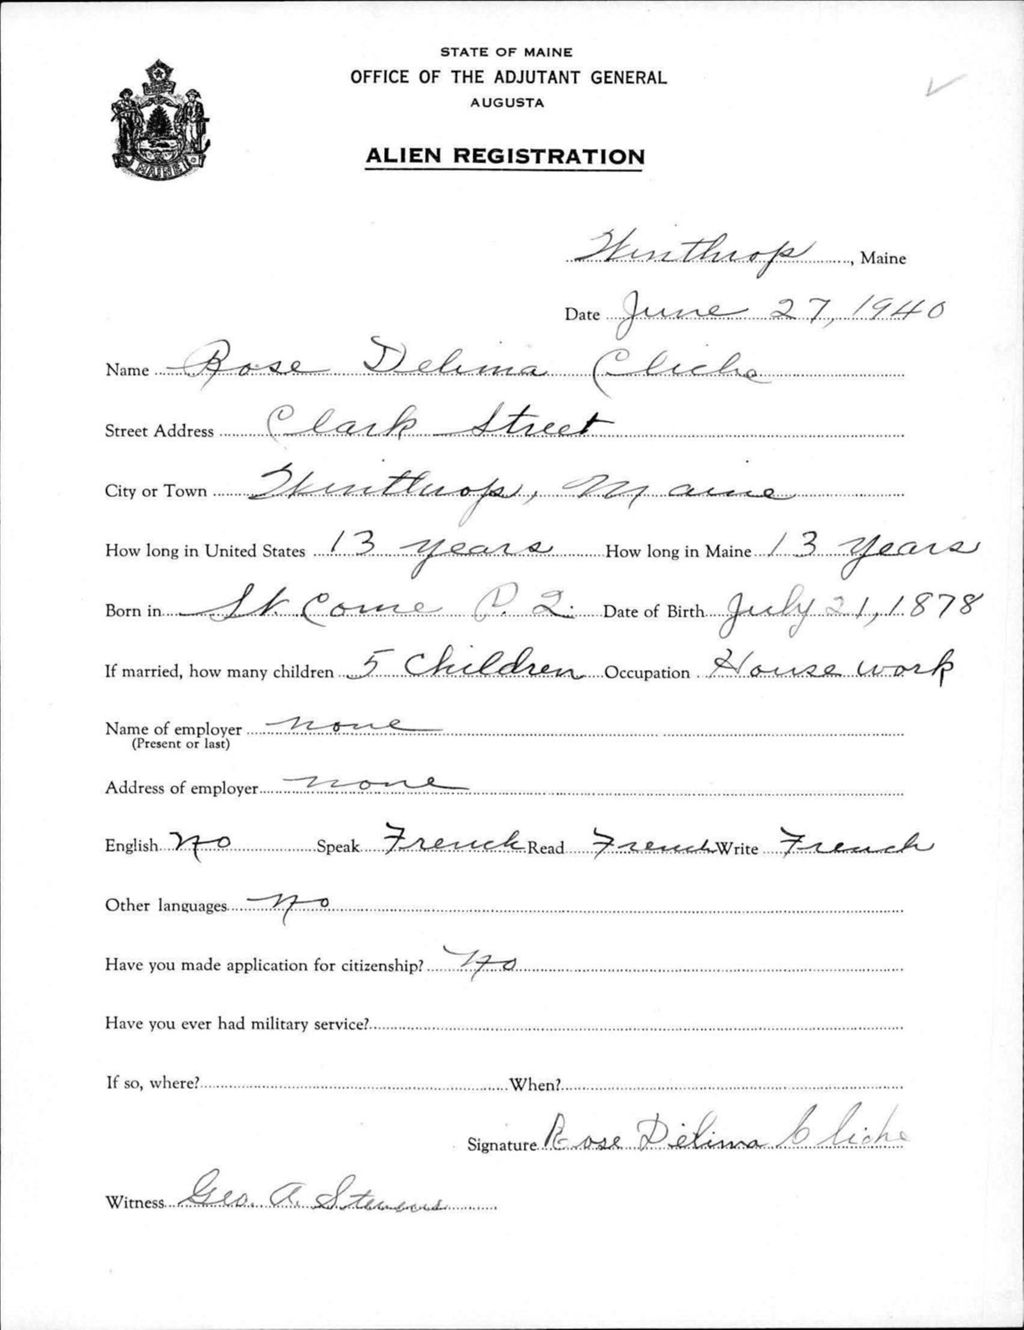 STATE OF MAINE
OFFICE OF THE ADJUTANT GENERAL
AUGUSTA
ALIEN REGISTRATION
MAINE
Winthrop, Maine
Date June 27, 1940
Name Rose Delima Cliche
Street Address Clark Street
City or Town Winthrop, Maine
How long in United States 13 years How long in Maine 13 years
Born in St. Come P. Q. Date of Birth July 21, 1878
If married, how many children 5 Children Occupation House work
Name of employer none
(Present or last)
Address of employer none
English No Speak French Read French Write French
Other languages No
Have you made application for citizenship? No
Have you ever had military service?
If so, where? When?
Signature Rose Délima Cliche
Witness Geo. A. Stevens